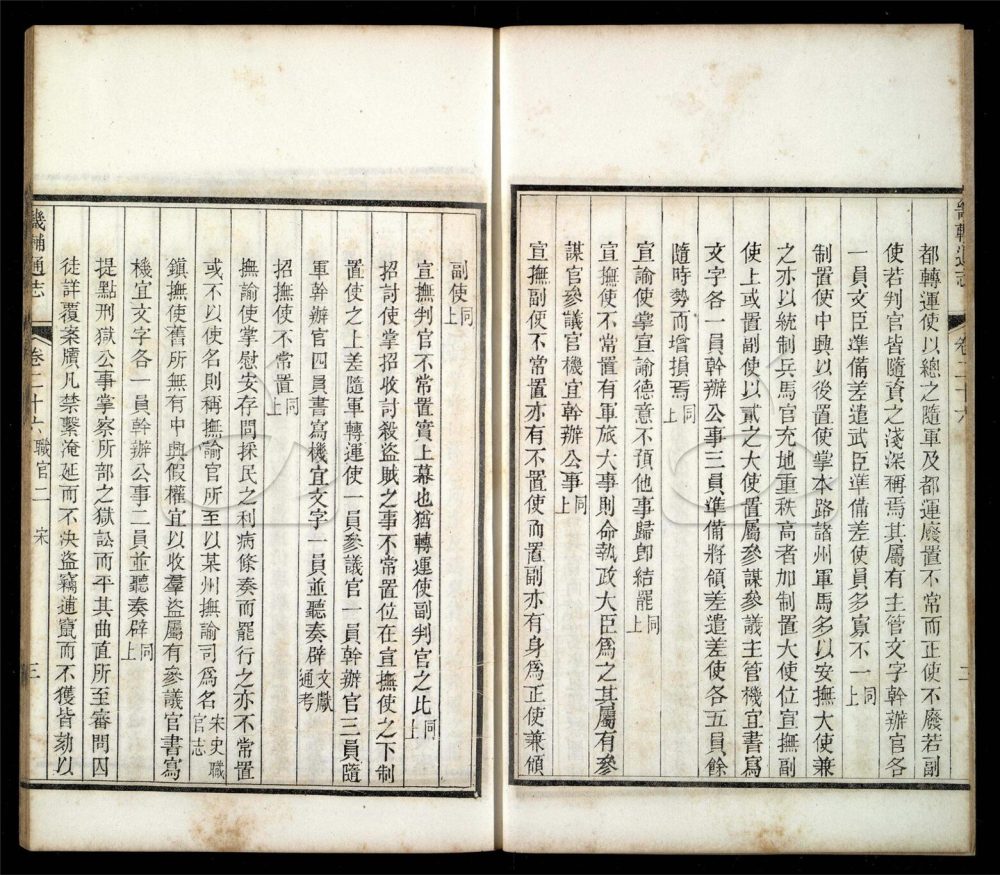 畿輔通志 卷二十六 二
都轉運使以總之隨軍及都運廢置不常而正使不廢若副
使若判官皆隨資之淺深稱焉其屬有主管文字幹辦官各
一員文臣準備差遣武臣準備差使員多寡不一同上
制置使中興以後置使掌本路諸州軍馬多以安撫大使兼
之亦以統制兵馬官充地重秩高者加制置大使位宣撫副
使上或置副使以貳之大使置屬參謀參議主管機宜書寫
文字各一員幹辦公事三員準備將領差遣差使各五員餘
隨時勢而增損焉同上
宣諭使掌宣諭德意不預他事歸卽結罷同上
宣撫使不常置有軍旅大事則命執政大臣爲之其屬有參
謀官參議官機宜幹辦公事同上
宣撫副使不常置亦有不置使而置副亦有身爲正使兼領
副使同上
宣撫判官不常置實上幕也猶轉運使副判官之比同上
招討使掌招收討殺盜賊之事不常置位在宣撫使之下制
置使之上差隨軍轉運使一員參議官一員幹辦官三員隨
軍幹辦官四員書寫機宜文字一員並聽奏辟文獻通考
招撫使不常置同上
撫諭使掌慰安存問採民之利病條奏而罷行之亦不常置
或不以使名則稱撫諭官所至以某州撫諭司爲名宋史職官志
鎮撫使舊所無有中興假權宜以收羣盜屬有參議官書寫
機宜文字各一員幹辦公事二員並聽奏辟同上
提點刑獄公事掌察所部之獄訟而平其曲直所至審問囚
徒詳覆案牘凡禁繫淹延而不決盜竊逋竄而不獲皆劾以
畿輔通志 卷二十六 職官二 宋 三